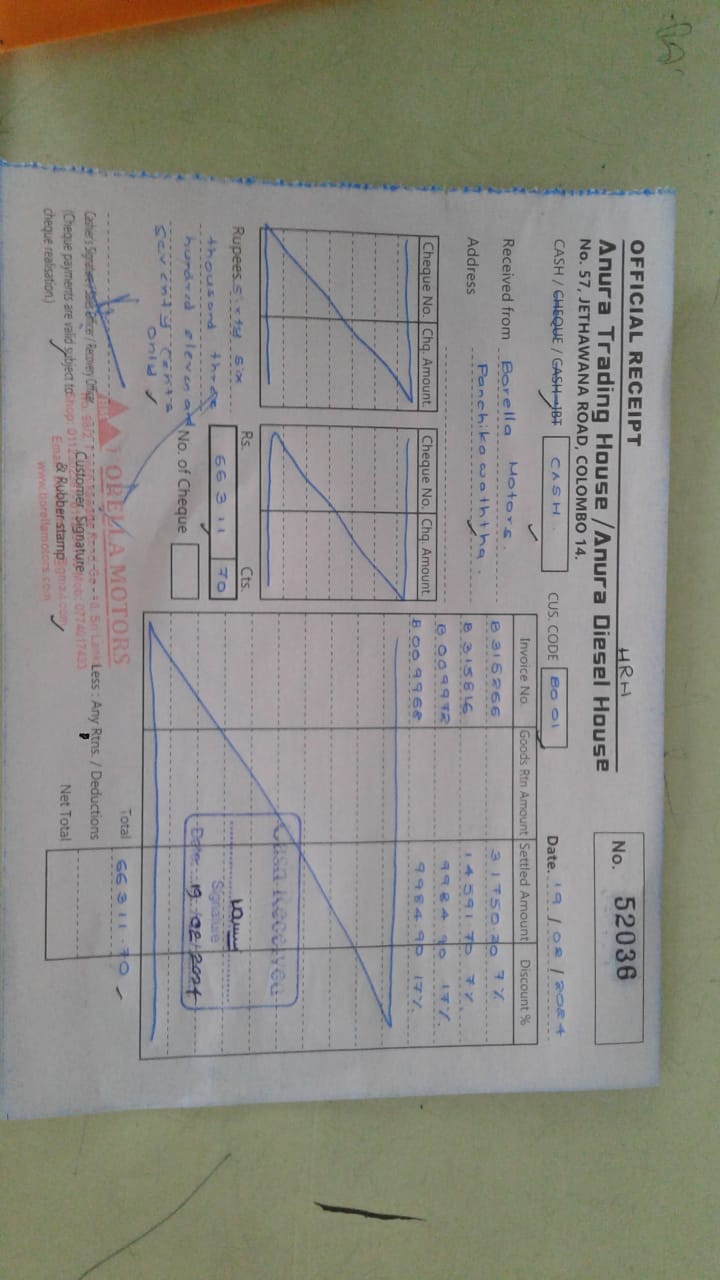 OFFICIAL RECEIPT
HRH
Anura Trading House / Anura Diesel House
No. 57, JETHAWANA ROAD, COLOMBO 14.
No. 52036
CASH / CHEQUE / CASH-IBT CASH CUS. CODE BO 01 Date. 19 / 02 / 2024
Received from Borella Motors.
Address Panchikawaththa.
Cheque No. Chq. Amount. Cheque No. Chq. Amount.
Invoice No. Goods Rtn Amount Settled Amount Discount %
B 315266 31750.20 7%
B 315816 14591.70 7%
B 009972 9984.90 17%
B 009968 9984.90 17%
Rupees sixty six
thousand three
hundred eleven and
seventy cents
only
Rs. Cts.
66311 70
No. of Cheque
Cash Received
Signature
Date: 19/02/2024
Total 66311.70
Less : Any Rtns. / Deductions
Net Total
BORELLA MOTORS
www.borellamotors.com
Cashier's Signature / Sales Officer / Recovery Officer
(Cheque payments are valid subject to
cheque realisation.)
Customer Signature
& Rubber stamp